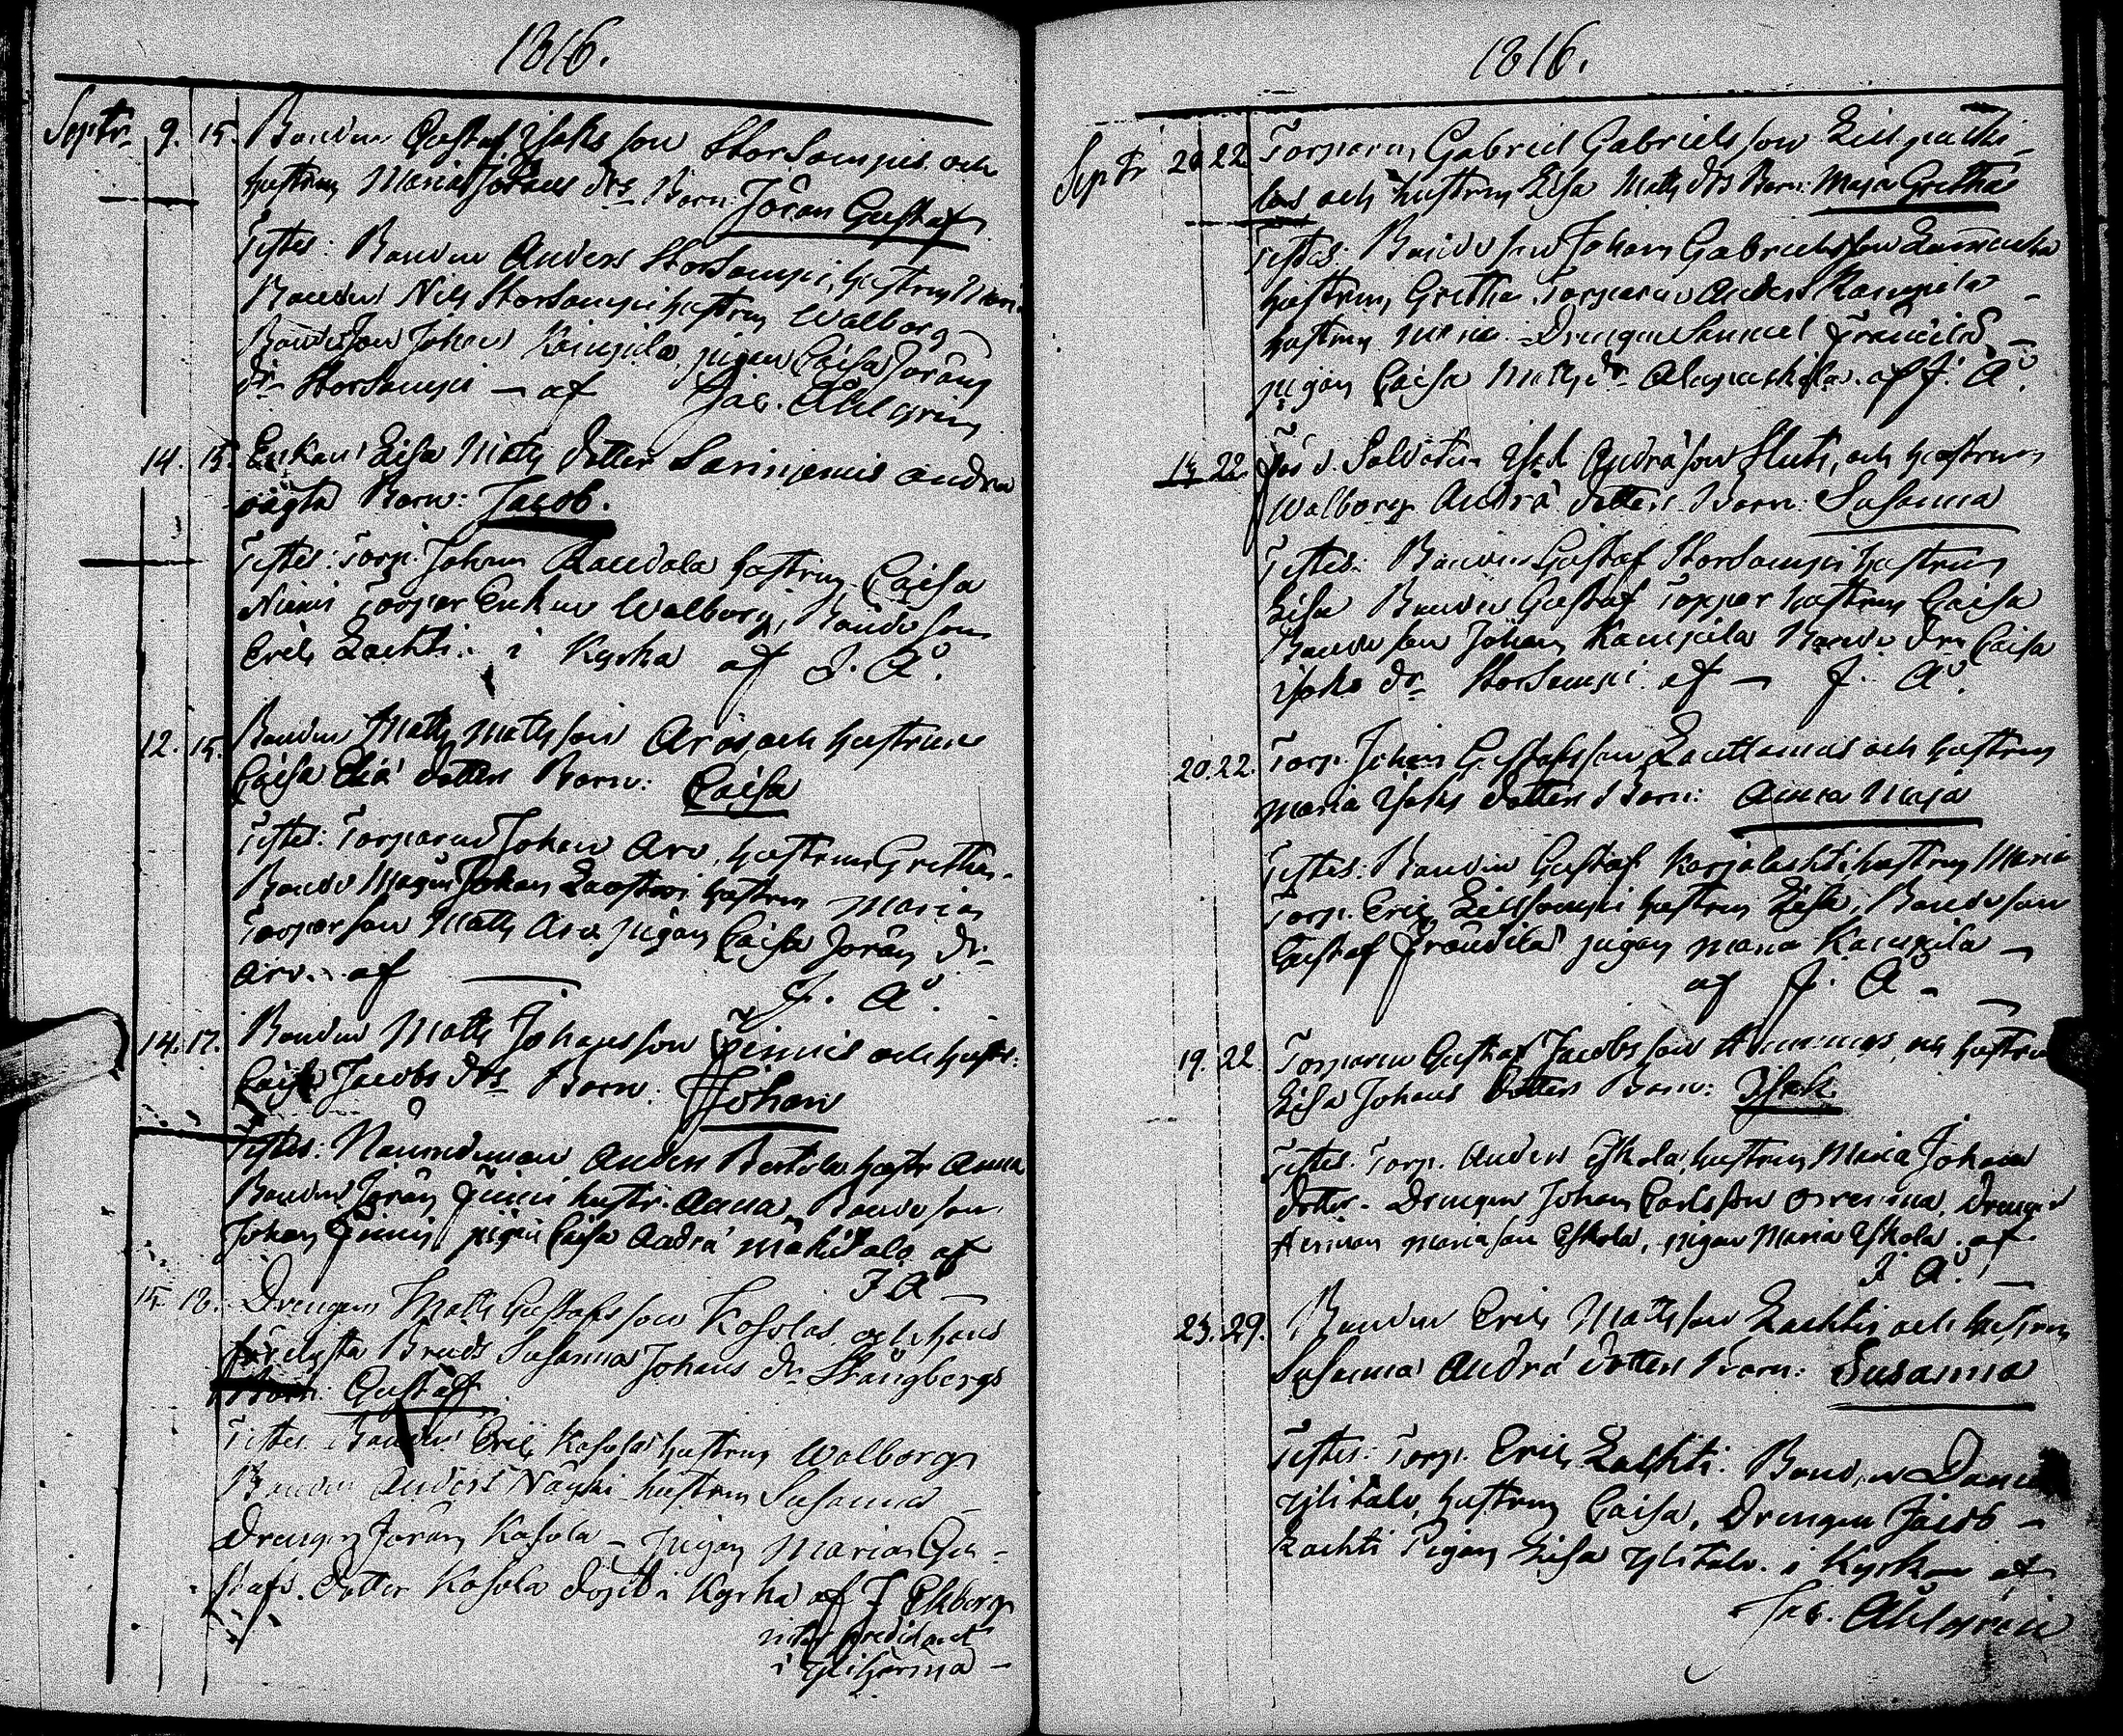 1816.
Septr 9. 15. Bonden Gustaf Isaks son Storsampis och
hustrun Maria Jörans drs Barn: Jöran Gustaf
Testes: Bonden Anders Storsampi, hustrun Maria
Bonden Nils Storsampi hustrun Walborg
Bondeson Johan Kangila, pigan Caisa Jörans
dr Storsampi — af Jac. Ahlgren
14. 15. Enkan Lisa Matts dotter Sarinjemis andra
oägta Barn: Jacob.
Testes: Torp. Johan Raudala hustrun Caisa
Niemi Torpar Enkan Walborg, Bonde son
Eric Lachti. i Kyrka af J. A.
12. 15. Bonden Matts Matts son Aros och hustrun
Caisa Eliä dotters Barn: Caisa
Testes: Torparen Johan Aro, hustrun Gretha.
Bonde Mågen Johan hustrun Maria
Torparson Matts Aro, pigan Caisa Jörans dr
Aro. af — J. A.
14. 17. Bonden Matts Johans son Finnis och hustr:
Caisa Jacobs drs Barn: Johan
Testes: Nämndeman Anders Bertula hustr Anna
Bonden Jöran Finni hustr. Anna, Bonde son
Johan Finni, pigan Caisa Andrä Mäkitalo af
J A —
15. 18. Drengen Matts Gustafs son Kosolas och hans
förelysta Bruds Susanna Johans dr Stångbergs
Barn: Gustaf
Testes: Bonden Eric Kosola hustrun Walborg
Bonden Anders hustrun Susanna —
Drengen Jöran Kosola — pigan Maria Gu-
stafs. dotter Kosola döpt i Kyrka af J Ekberg
predicant
i Ylihärmä —
1816.
Septr 20. 22. Torparen Gabriel Gabriels son
las och hustrun Lisa Matts drs Barn: Maja Gretha
Testes: Bonde son Johan Gabriels son
hustrun Gretha Torparen Anders Kangila
hustrun Maria. Drengen Samuel Frändilä —
pigan Caisa Matts dr Alapaskila. af J. A.
22. Soldaten Isak Andrä son Slut, och hustrun
Walborg Andrä dotters Barn: Susanna
Testes: Bonden Gustaf Storsampi hustrun
Lisa Bonden Gustaf Topper hustrun Caisa
Bonde son Johan Kangila Bonde dr Caisa
Isaks dr Storsampi af — J. A.
20. 22. Torp. Johan Gustafs son Lauttamus och hustrun
Maria Isaks dotters Barn: Anna Maja
Testes: Bonden Gustaf Karjalachti hustrun Maria
Torp. Eric Lillsampi hustrun Lisa, Bondeson
Gustaf Frändilä pigan Maria Kangila —
af J. A —
19. 22 Torparen Gustaf Jacobs son och hustrun
Lisa Johans dotters Barn: Isak
Testes. Torp. Anders Eskola, hustrun Maria Johans
dotter. Drengen Johan Carls son Drengen
Herman Mariason Eskola, pigan Maria Eskola. af
J A. —
23. 29. Bonden Eric Matts son Lachtis och hustrun
Susanna Andrä dotters Barn: Susanna
Testes: Torp. Eric Lachti. Bonden
Ylitalo, hustrun Caisa, Drengen Jacob —
Lachti Pigan Lisa Ylitalo. i Kyrkan af
Jac. Ahlgren